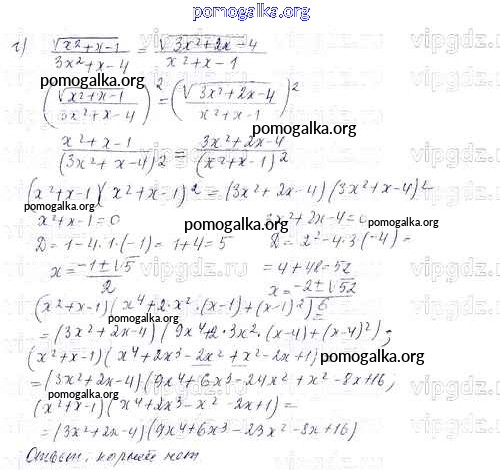 pomogalka.org
г) √(x²+x-1) / (3x²+x-4) = √(3x²+2x-4) / (x²+x-1)
pomogalka.org
(√(x²+x-1) / (3x²+x-4))² = (√(3x²+2x-4) / (x²+x-1))²
pomogalka.org
(x²+x-1) / (3x²+x-4)² = (3x²+2x-4) / (x²+x-1)²
(x²+x-1)(x²+x-1)² = (3x²+2x-4)(3x²+x-4)²
x²+x-1=0 3x²+2x-4=0
pomogalka.org pomogalka.org pomogalka.org
D=1-4·1·(-1)=1+4=5 D=2²-4·3(-4)=
x = (-1±√5)/2 =4+48=52
x = (-2±√52)/6
pomogalka.org
(x²+x-1)(x⁴+2·x²·(x-1)+(x-1)²)
=(3x²+2x-4)(9x⁴+2·3x²·(x-4)+(x-4)²);
(x²+x-1)(x⁴+2x³-2x²+x²-2x+1)
pomogalka.org
=(3x²+2x-4)(9x⁴+6x³-24x²+x²-8x+16;
pomogalka.org
(x²+x-1)(x⁴+2x³-x²-2x+1)=
=(3x²+2x-4)(9x⁴+6x³-23x²-8x+16)
Ответ: корней нет
pomogalka.org